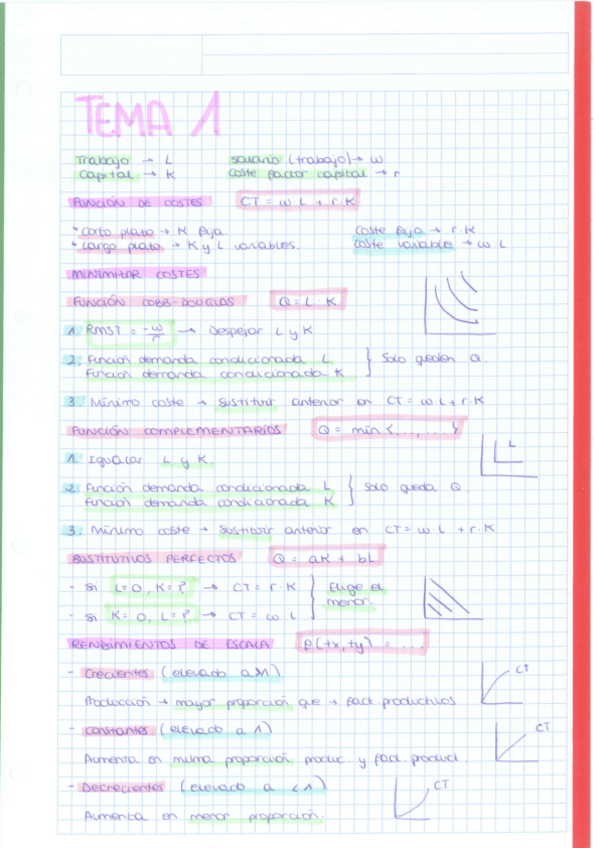 TEMA 1
Trabajo → L    salario (trabajo) → w
Capital → K    coste factor capital → r
FUNCIÓN DE COSTES    CT = w·L + r·K
* corto plazo → K fija.    coste fijo → r·K
* Largo plazo → K y L variables.    coste variable → w·L
MINIMIZAR COSTES
FUNCIÓN COBB-DOUGLAS    Q = L·K
1. RMST = -w/r → Despejar L y K
2. Función demanda condicionada L
Función demanda condicionada K } Solo queden Q.
3. Mínimo coste → sustituir anterior en CT = w·L + r·K
FUNCIÓN COMPLEMENTARIOS    Q = min {..., ...}
L
1. Igualar L y K.
2. Función demanda condicionada L
Función demanda condicionada K } Solo queda Q.
3. Mínimo coste → sustituir anterior en CT = w·L + r·K
SUSTITUTIVOS PERFECTOS    Q = aK + bL
- Si L=0, K=? → CT = r·K
- Si K=0, L=? → CT = w·L } Elige el menor.
RENDIMIENTOS DE ESCALA    f(tx, ty) = ...
- Crecientes (elevado a >1)    CT
Producción → mayor proporción que → fact. productivos
- Constantes (elevado a 1)    CT
Aumenta en misma proporción produc. y fact. product.
- Decrecientes (elevado a <1)    CT
Aumenta en menor proporción.